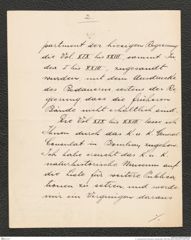 2
partment der hiesigen Regierung
die Vol XIX bis XXIII, sammt In
dex I bis XXIII, zugesandt
wurden, mit dem Ausdrucke
des Bedauerns seitens der Re
gierung dass die früheren
Bände nicht erhältlich sind.
Die Vol XIX bis XXIII lasse ich
Ihnen durch das k. u. k. General
Consulat in Bombay zugehen.
Ich habe ersucht das k. u. k.
naturhistorische Museum auf
die Liste für weitere Publica
tionen zu setzen und werde
mir ein Vergnügen daraus